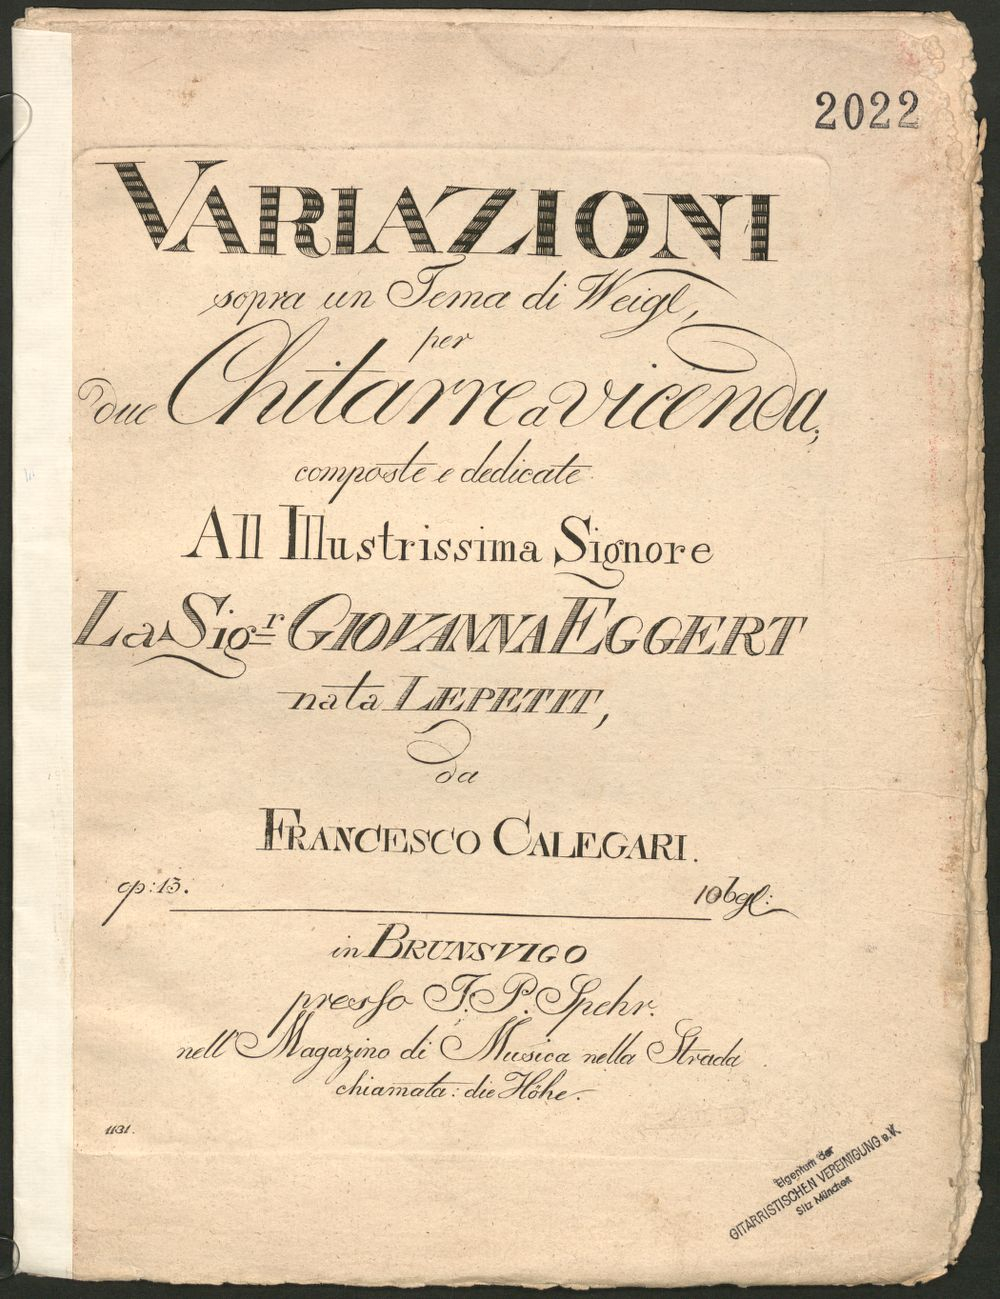 2022
VARIAZIONI
sopra un Tema di Weigl,
per
due Chitarre a vicenda,
composte e dedicate
All Illustrissima Signore
La Sigr GIOVANNA EGGERT
nata LEPETIT,
da
FRANCESCO CALEGARI.
op: 13. 10bgl:
in BRUNSVIGO
presso J. P. Spehr.
nell Magazino di Musica nella Strada
chiamata: die Höhe.
1131.
Eigentum der
GITARRISTISCHEN VEREINIGUNG e.V.
Sitz München